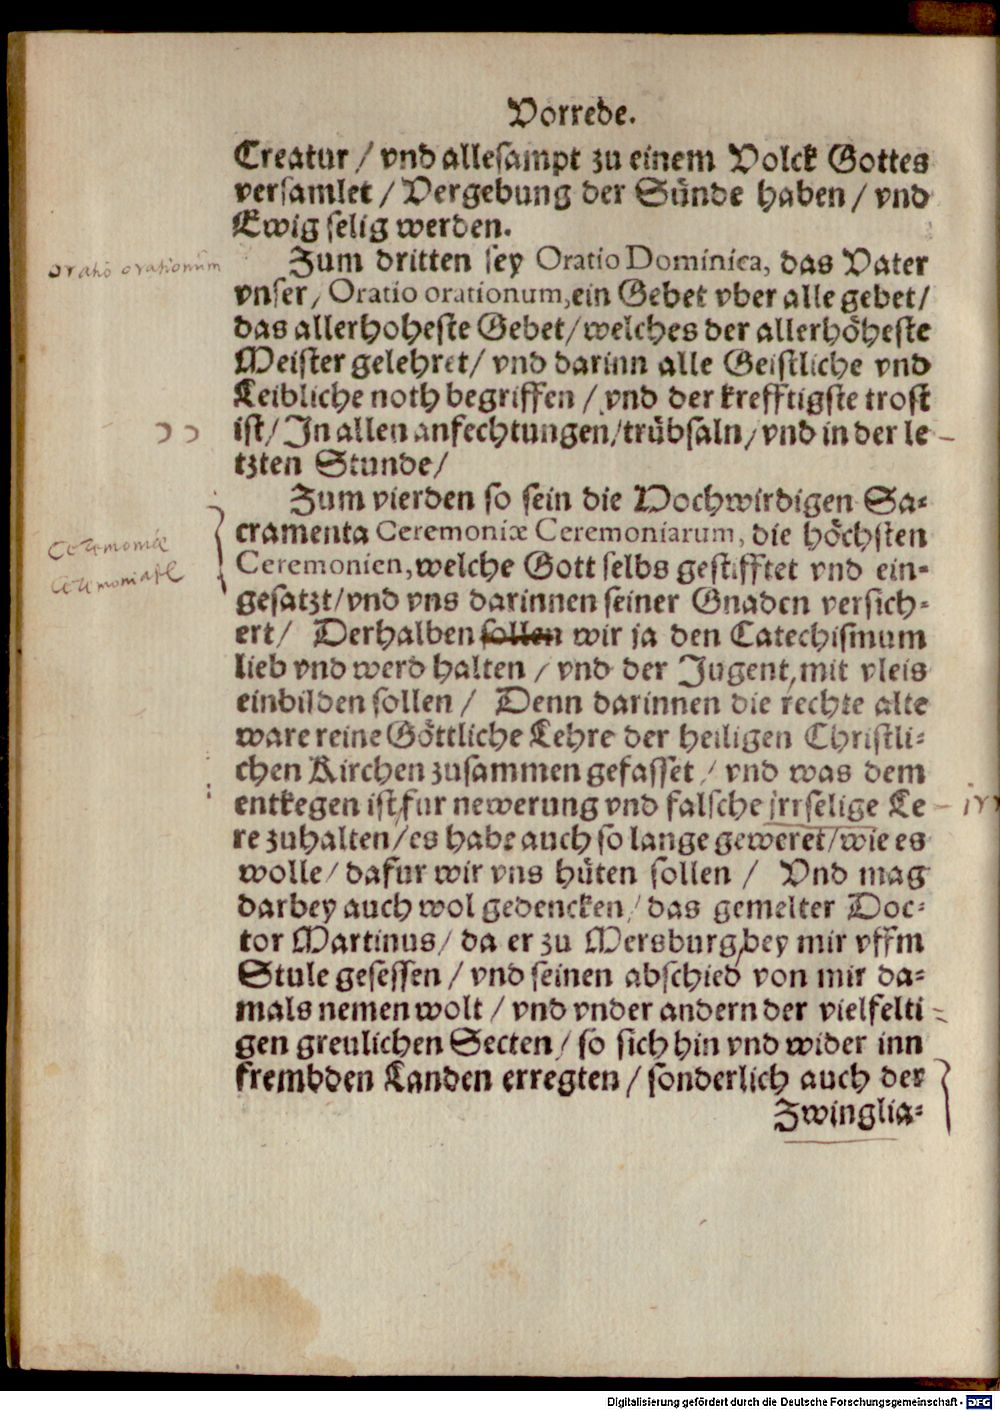 Vorrede.
Creatur / vnd allesampt zu einem Volck Gottes
versamlet / Vergebung der Sünde haben / vnd
Ewig selig werden.
Zum dritten sey Oratio Dominica, das Vater
vnser, Oratio orationum, ein Gebet vber alle gebet/
das allerhoheste Gebet/ welches der allerhöheste
Meister gelehret/ vnd darinn alle Geistliche vnd
Leibliche noth begriffen / vnd der krefftigste trost
ist/ In allen anfechtungen/trübsaln/ vnd in der le
tzten Stunde/
Zum vierden so sein die Hochwirdigen Sa-
cramenta Ceremoniæ Ceremoniarum, die höchsten
Ceremonien, welche Gott selbs gestifftet vnd ein-
gesatzt/ vnd vns darinnen seiner Gnaden versich-
ert/ Derhalben sollen wir ja den Catechismum
lieb vnd werd halten / vnd der Jugent, mit vleis
einbilden sollen / Denn darinnen die rechte alte
ware reine Göttliche Lehre der heiligen Christli-
chen Kirchen zusammen gefasset / vnd was dem
entkegen ist, fur newerung vnd falsche jrrselige Le
re zuhalten/ es habe auch so lange geweret/ wie es
wolle/ dafur wir vns hüten sollen / Vnd mag
darbey auch wol gedencken/ das gemelter Doc-
tor Martinus/ da er zu Mersburg, bey mir vffm
Stule gesessen / vnd seinen abschied von mir da-
mals nemen wolt / vnd vnder andern der vielfelti
gen greulichen Secten/ so sich hin vnd wider inn
frembden Landen erregten / sonderlich auch der
Zwinglia-
oratio orationum
Ceremoniæ
Digitalisierung gefördert durch die Deutsche Forschungsgemeinschaft - DFG